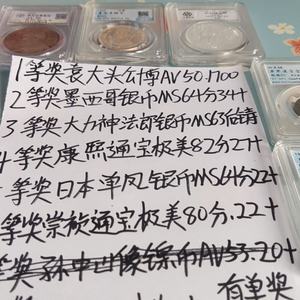 1等奖袁大头公博AV50.1700
2等奖墨西哥银币MS64分34+
3等奖大力神法郎银币MS63伯
等奖康熙通宝极美82分27+
等奖日本单凤银币MS64分22+
等奖崇祯通宝极美80分.22+
等奖孙中山像镍币AV53.20+
有单奖